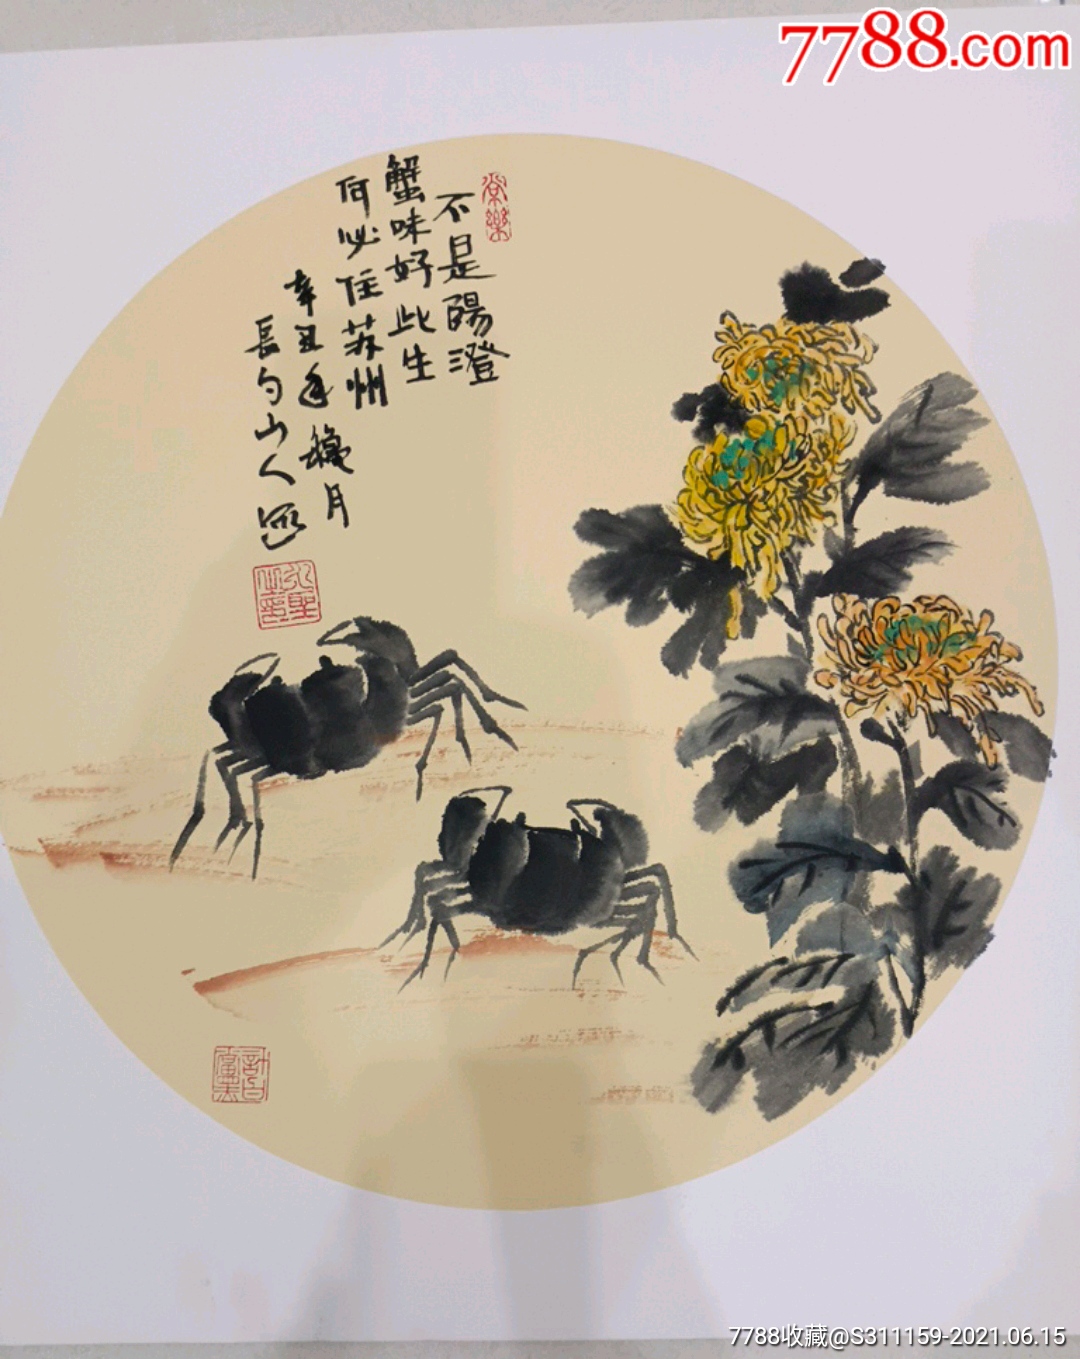 7788.com
常樂
不是陽澄
蟹味好此生
何必住苏州
辛丑年 月
長勺山人写
計白當黑
7788收藏@S311159-2021.06.15